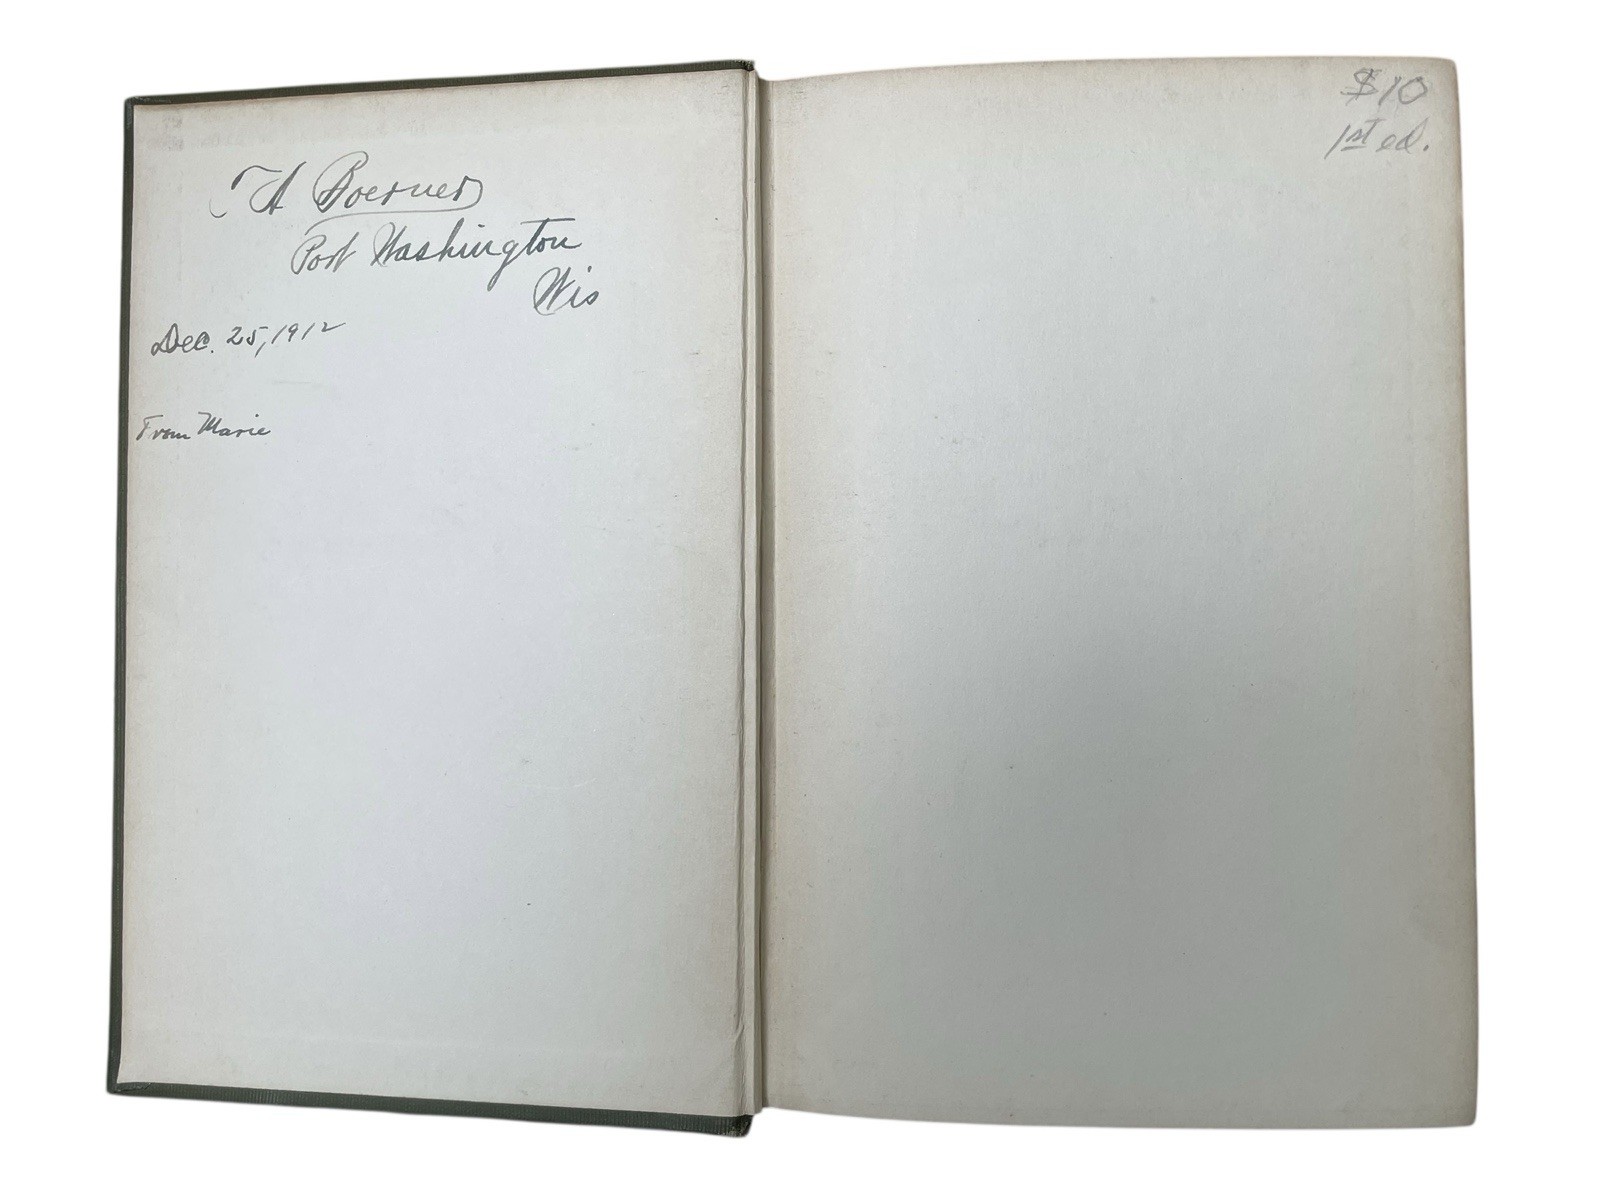 T A Boerner
Port Washington
Wis
Dec. 25, 1912
From Marie
$10
1st ed.